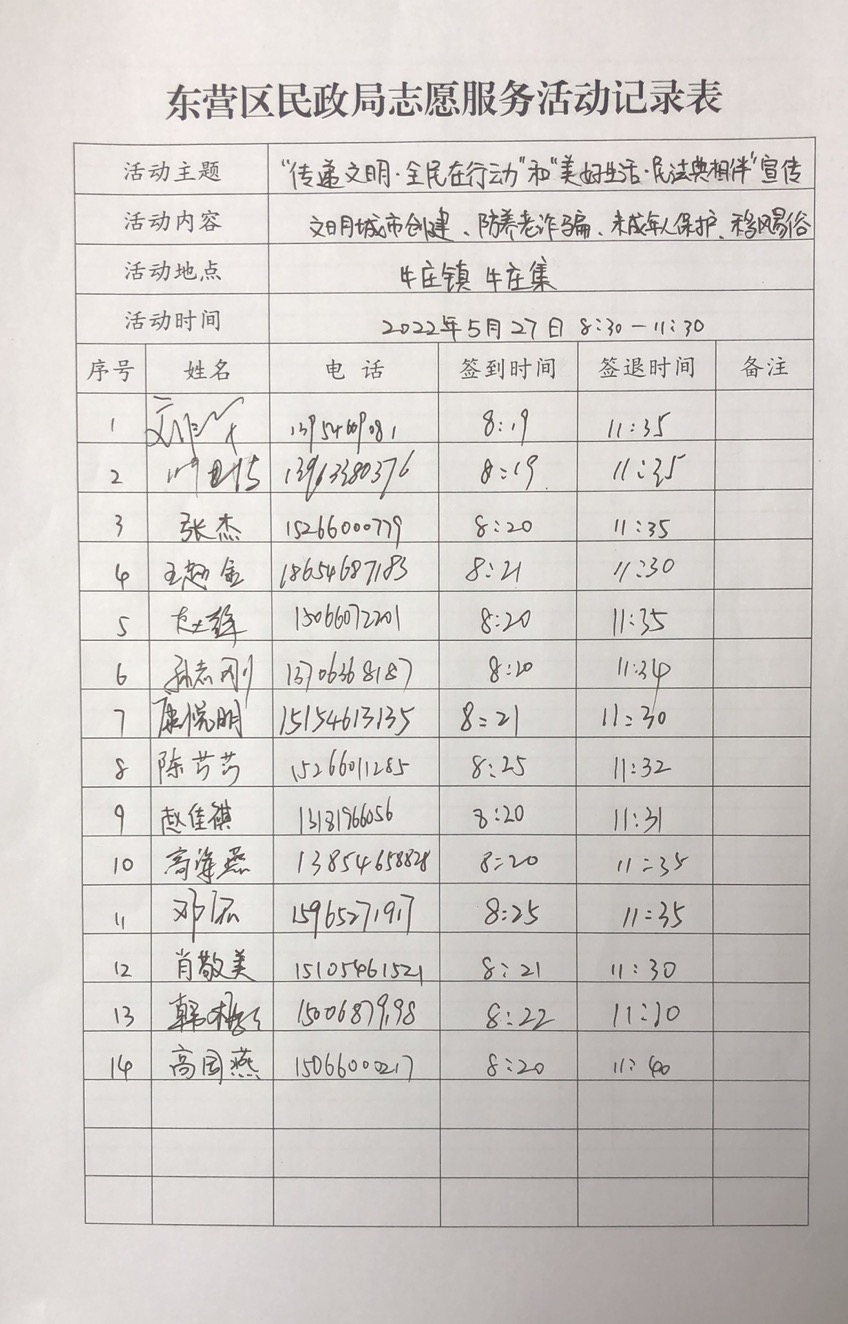 东营区民政局志愿服务活动记录表
活动主题 "传递文明·全民在行动"和"美好生活·民法典相伴"宣传
活动内容 文明城市创建、防养老诈骗、未成年人保护、移风易俗
活动地点 牛庄镇 牛庄集
活动时间 2022年5月27日 8:30-11:30
序号 姓名 电话 签到时间 签退时间 备注
1 13954609081 8:19 11:35
2 13963380376 8:19 11:35
3 张杰 15266000779 8:20 11:35
4 王 金 18654687183 8:21 11:30
5 15066072201 8:20 11:35
6 孙志刚 13706368187 8:20 11:34
7 康悦明 15154613135 8:21 11:30
8 陈芳芳 15266011285 8:25 11:32
9 赵佳祺 13181966056 8:20 11:31
10 高海燕 13854658828 8:20 11:35
11 邓 15965271917 8:25 11:35
12 肖敬美 15105461521 8:21 11:30
13 韩 15006879198 8:22 11:30
14 高国燕 15066000217 8:20 11:40